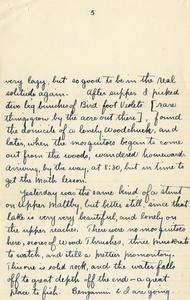 5
very lazy, but so good to be in the real
solitude again. After supper I picked
two big bunches of Bird foot Violets [rare
things grow by the acre out there], found
the domicile of a lonely Woodchuck, and
later, when the mosquitoes began to come
out from the woods, wandered homeward
arriving, by the way, at 8:30, but in time to
get the Math lesson.
Yesterday was the same kind of a stunt
on Upper Maltby, but better still, since that
lake is very very beautiful, and lovely on
the upper reaches. There were no mosquitoes
here, scores of Wood Thrushes, three muskrats
to watch, and still a prettier promontory.
This one is solid rock, and the water falls
off to great depth off the end – a great
place to fish. Benjamin & I are going